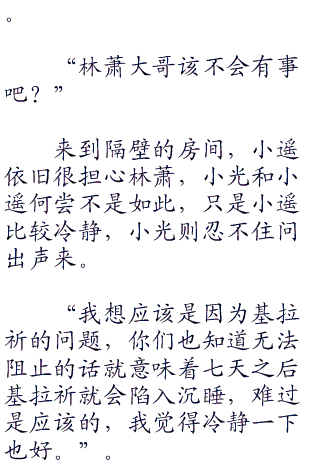 。
“林萧大哥该不会有事
吧？”
来到隔壁的房间，小遥
依旧很担心林萧，小光和小
遥何尝不是如此，只是小遥
比较冷静，小光则忍不住问
出声来。
“我想应该是因为基拉
祈的问题，你们也知道无法
阻止的话就意味着七天之后
基拉祈就会陷入沉睡，难过
是应该的，我觉得冷静一下
也好。”。